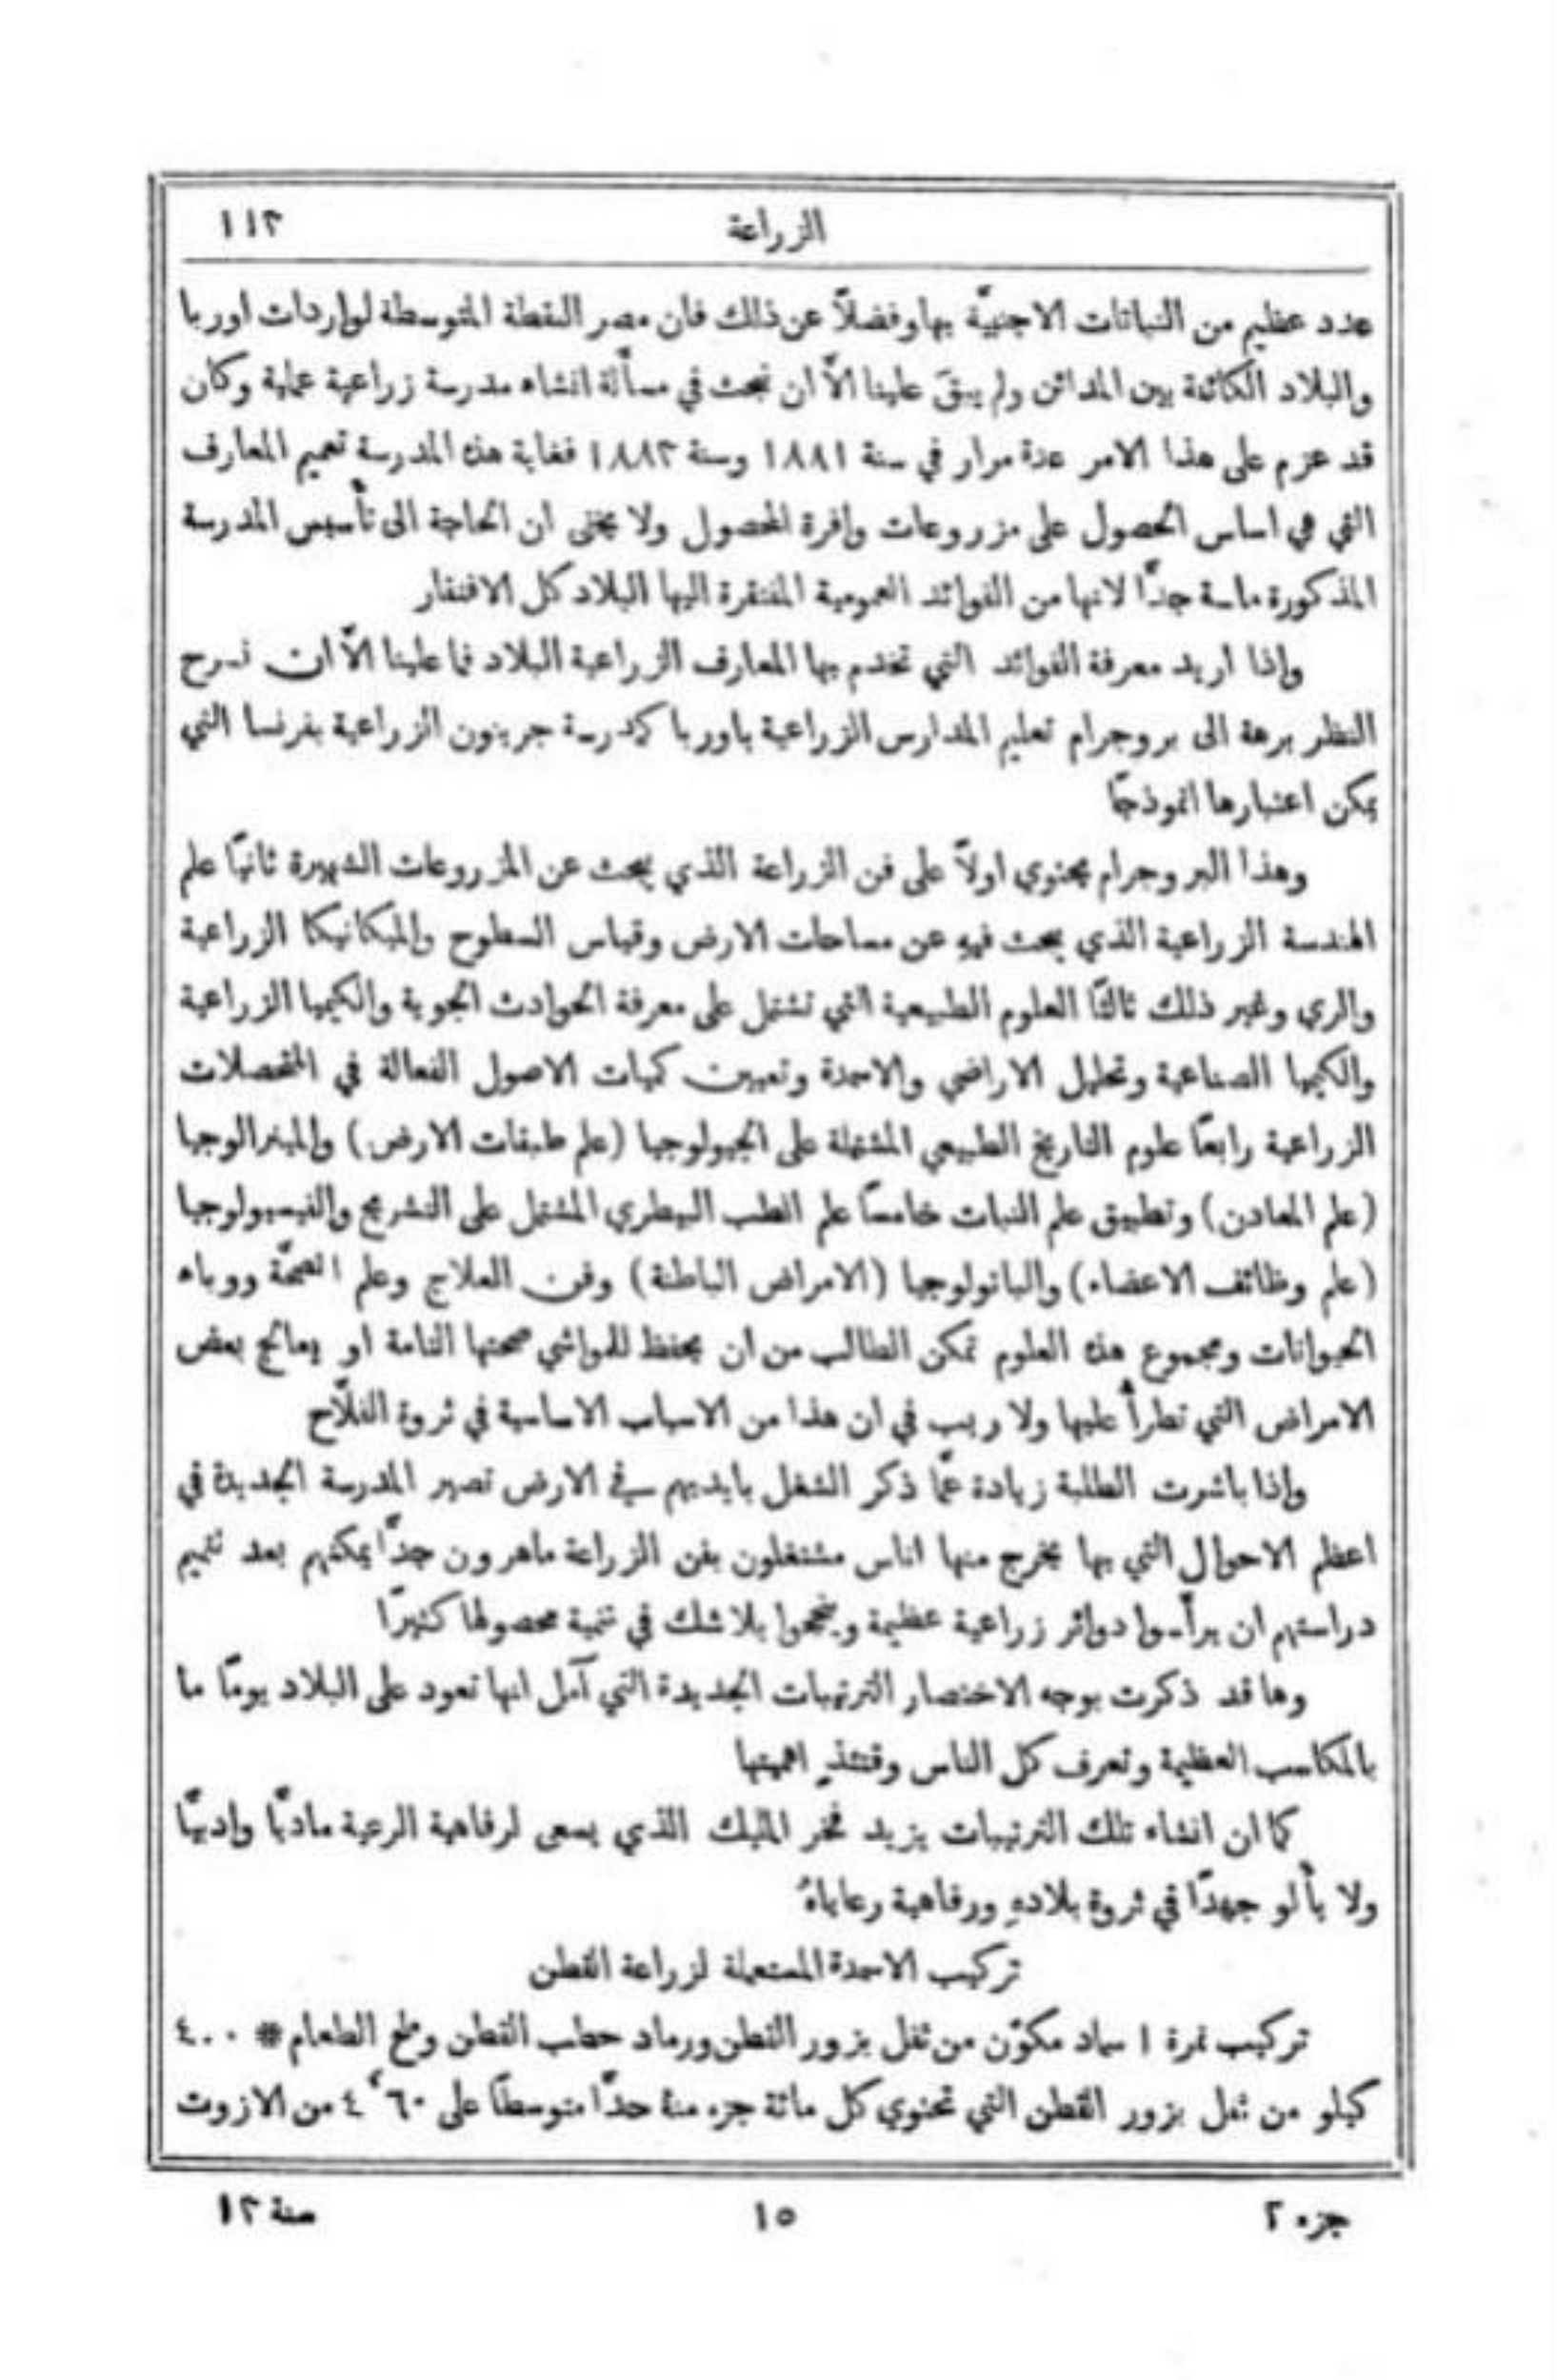 الزراعة ١١٣
عدد عظيم من النباتات الاجنبيَّة بها وفضلاً عن ذلك فان مصر النقطة المتوسطة لواردات اوربا
والبلاد الكائنة بين المدائن ولم يبقَ علينا الاَّ ان نبحث في مسأَلة انشاء مدرسة زراعية عملية وكان
قد عزم على هذا الامر عدة مرار في سنة ١٨٨١ وسنة ١٨٨٣ فغاية هذه المدرسة تعميم المعارف
التي هي اساس الحصول على مزروعات وافرة المحصول ولا يخفى ان الحاجة الى تأسيس المدرسة
المذكورة ماسة جدًّا لانها من الفوائد العمومية المفتقرة اليها البلاد كل الافتقار
واذا اريد معرفة الفوائد التي تخدم بها المعارف الزراعية البلاد فما علينا الاَّ ان نسرح
النظر برهة الى بروجرام تعليم المدارس الزراعية باوربا كمدرسة جرينون الزراعية بفرنسا التي
يمكن اعتبارها انموذجًا
وهذا البروجرام يحتوي اولاً على فن الزراعة الذي يبحث عن المزروعات الشهيرة ثانيًا علم
الهندسة الزراعية الذي يبحث فيهِ عن مساحات الارض وقياس السطوح والميكانيكا الزراعية
والري وغير ذلك ثالثًا العلوم الطبيعية التي تشتمل على معرفة الحوادث الجوية والكيميا الزراعية
والكيميا الصناعية وتحليل الاراضي والاسمدة وتعيين كميات الاصول الفعالة في المتحصلات
الزراعية رابعًا علوم التاريخ الطبيعي المشتملة على الجيولوجيا (علم طبقات الارض) والمينرالوجيا
(علم المعادن) وتطبيق علم النبات خامسًا علم الطب البيطري المشتمل على التشريح والفيسيولوجيا
(علم وظائف الاعضاء) والباتولوجيا (الامراض الباطنة) وفن العلاج وعلم الصحَّة ووباء
الحيوانات ومجموع هذه العلوم تمكن الطالب من ان يحفظ للمواشي صحتها التامة او يعالج بعض
الامراض التي تطرأُ عليها ولا ريب في ان هذا من الاسباب الاساسية في ثروة الفلَّاح
واذا باشرت الطلبة زيادة عمَّا ذكر الشغل بايديهم في الارض تصير المدرسة الجديدة في
اعظم الاحوال التي بها يخرج منها اناس مشتغلون بفن الزراعة ماهرون جدًّا يمكنهم بعد تتميم
دراستهم ان يرأَسوا دوائر زراعية عظيمة وينجحوا بلا شك في تنمية محصولها كثيرًا
وها قد ذكرت بوجه الاختصار الترتيبات الجديدة التي آمل انها تعود على البلاد يومًا ما
بالمكاسب العظيمة وتعرف كل الناس وقتئذٍ اهميتها
كما ان انشاء تلك الترتيبات يزيد فخر المليك الذي يسعى لرفاهية الرعية ماديًّا وادبيًّا
ولا يأْلو جهدًا في ثروة بلادهِ ورفاهية رعاياهُ
تركيب الاسمدة المستعملة لزراعة القطن
تركيب نمرة ١ سماد مكوَّن من ثفل بزور القطن ورماد حطب القطن وملح الطعام * ٤٠٠
كيلو من ثفل بزور القطن التي تحتوي كل مائة جزء منهُ حدًّا متوسطًا على ٦٠‘٤ من الازوت
جزء ٢ ١٥ سنة ١٢